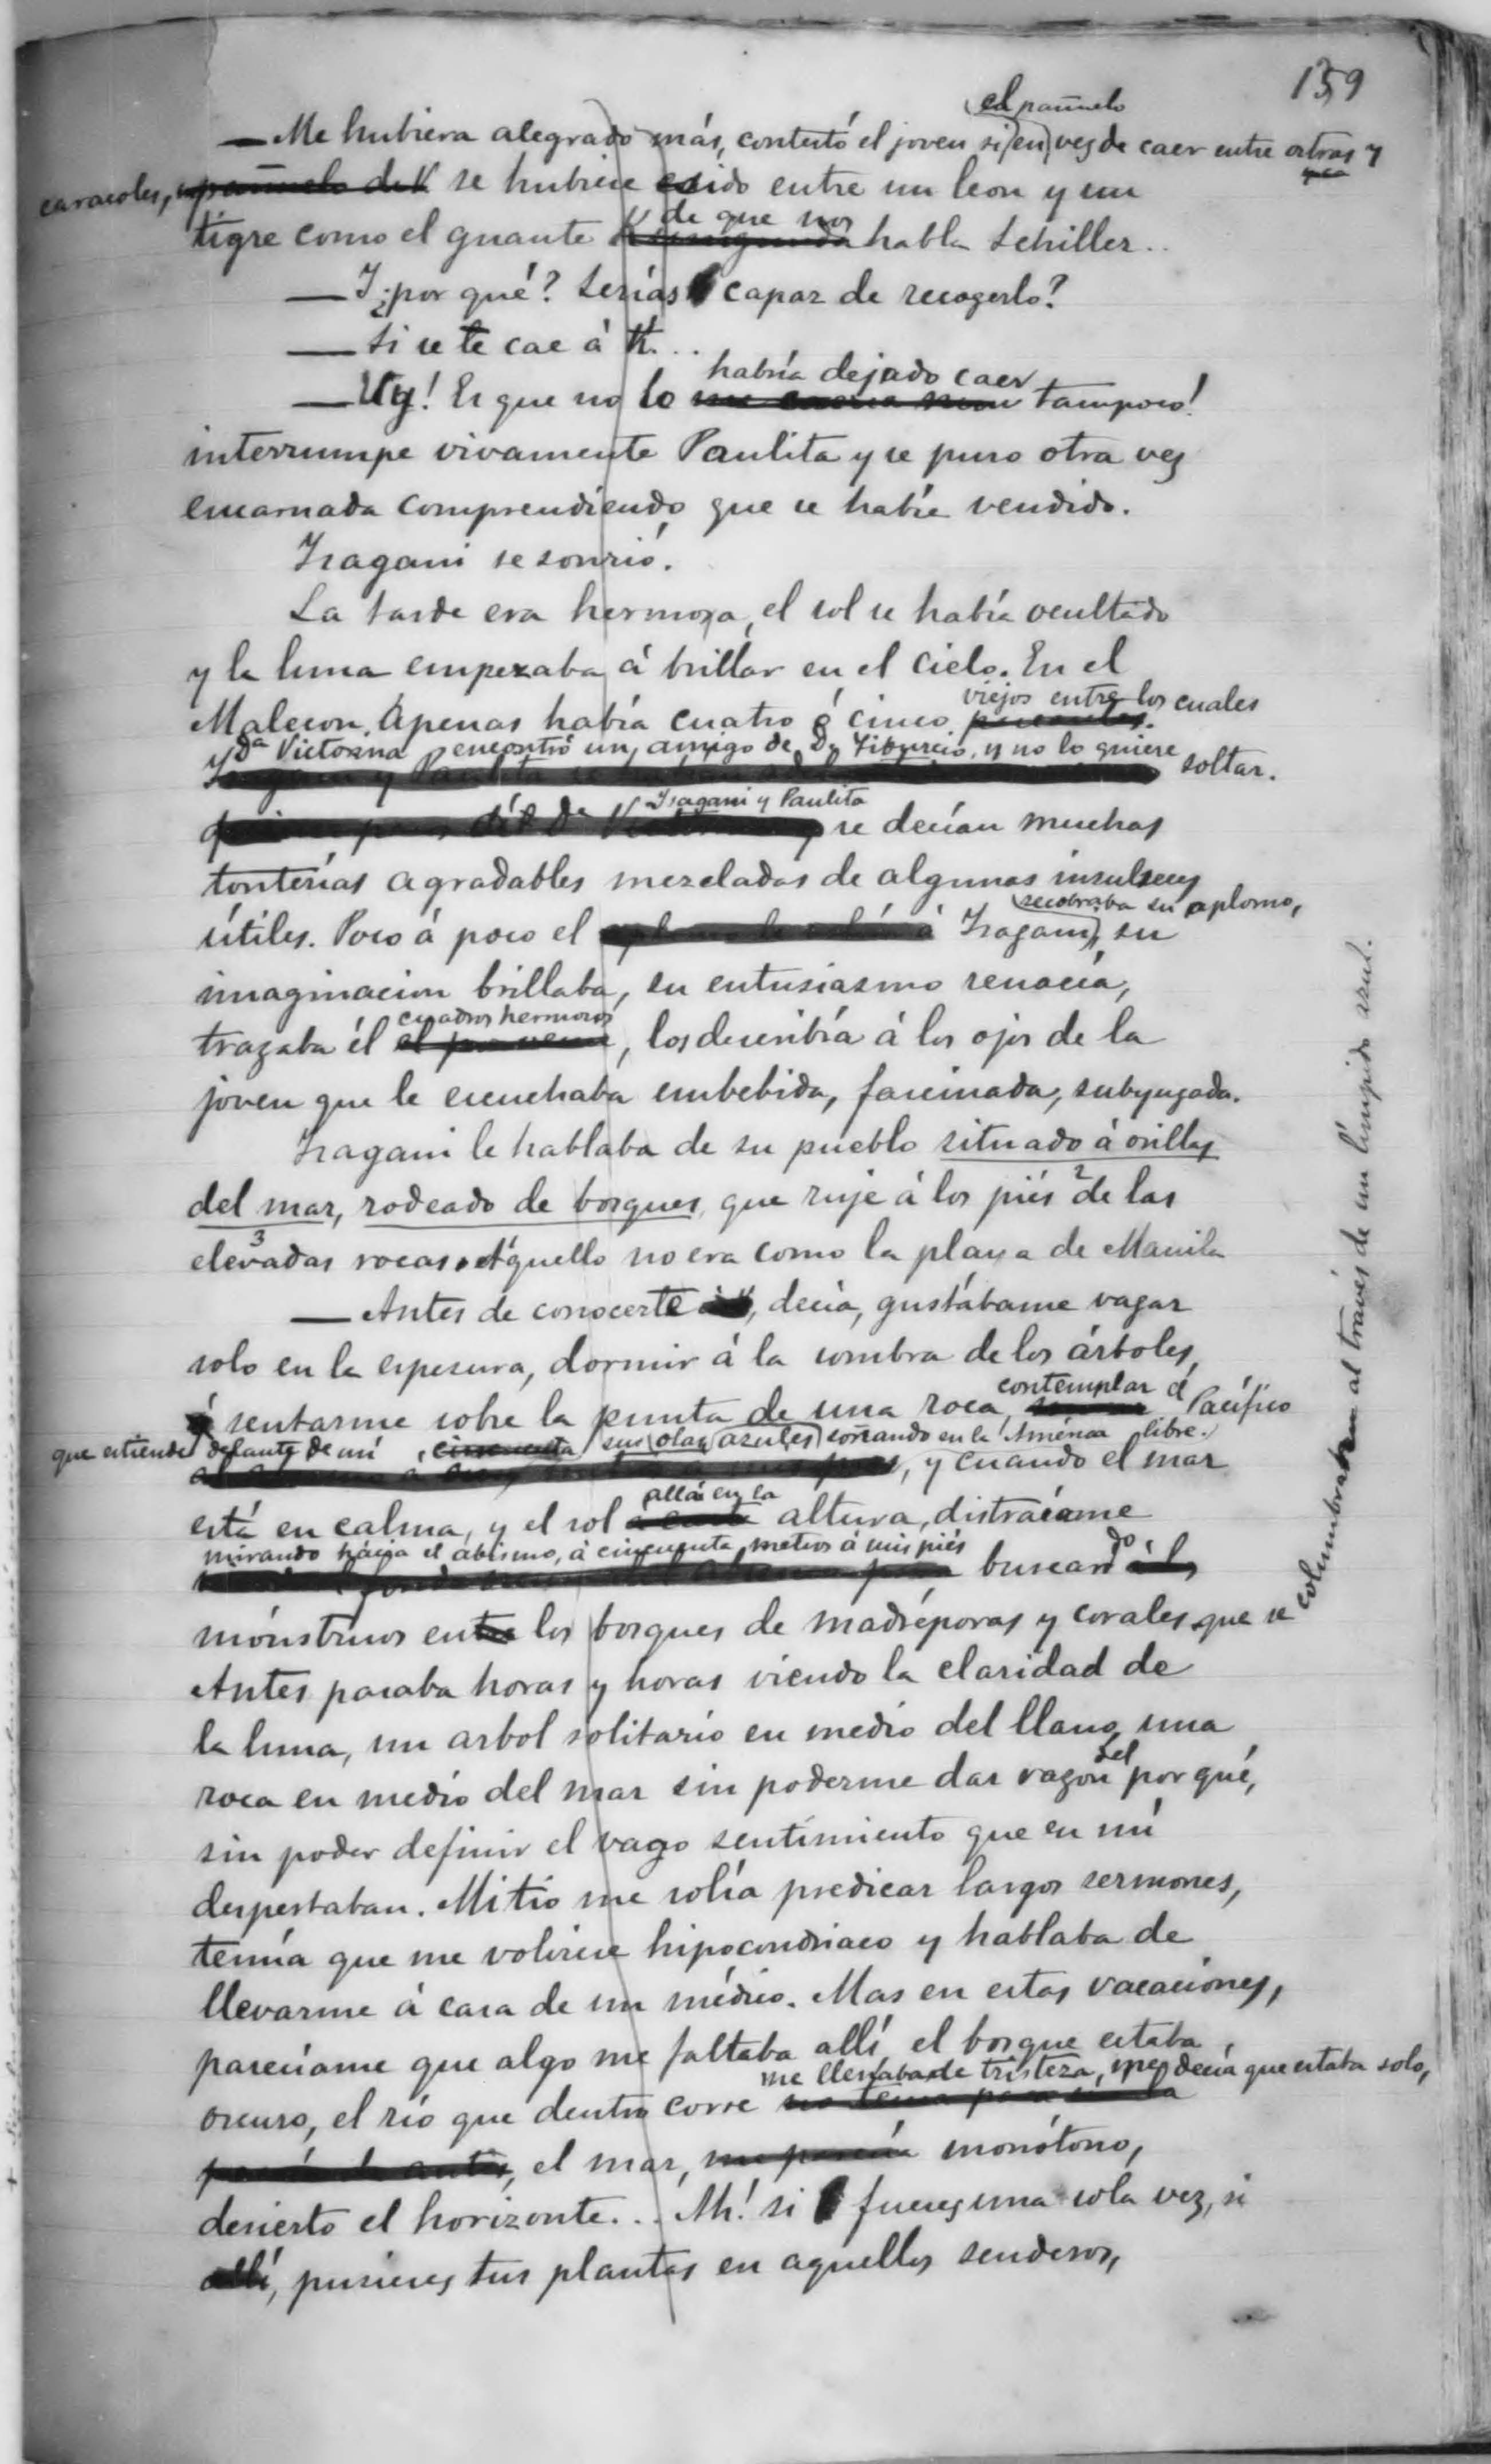 159
el pañuelo
— Me hubiera alegrado más, contestó el joven si en vez de caer entre ostras y
caracoles, se hubiese caido entre un leon y un
de que nos
tigre como el guante habla Schiller..
— Y ¿por qué? Serías capaz de recogerlo?
— Si se te cae á tí...
habría dejado caer
— Uy! Es que no lo tampoco!
interrumpe vivamente Paulita y se puso otra vez
encarnada comprendiendo que se había vendido.
Isagani se sonrió.
La tarde era hermosa, el sol se había ocultado
y la luna empezaba á brillar en el cielo. En el
viejos entre los cuales
Malecon. Apenas había cuatro ó cinco
y Dª Victorina encontró un amigo de Dn Tiburcio, y no lo quiere soltar.
Isagani y Paulita
se decían muchas
tonterías agradables mezcladas de algunas insulseces
recobraba su aplomo,
útiles. Poco á poco el Isagani, su
imaginacion brillaba, su entusiasmo renacía,
cuadros hermosos
trazaba él , los describía á los ojos de la
joven que le escuchaba embebida, fascinada, subyugada.
Isagani le hablaba de su pueblo situado á orillas
2
del mar, rodeado de bosques, que ruje á los piés de las
3
elevadas rocas. Aquello no era como la playa de Manila
— Antes de conocerte , decía, gustábame vagar
solo en la espesura, dormir á la sombra de los árboles,
contemplar el Pacífico
ó sentarme sobre la punta de una roca,
que estiende delante de mí, sus olas azules soñando en la América libre.
, y cuando el mar
allá en la
está en calma, y el sol altura, distraíame
mirando hácia el abismo, á cincuenta metros á mis piés
buscando
mónstruos en los bosques de madréporas y corales que se
columbraban al través de un límpido azul.
Antes pasaba horas y horas viendo la claridad de
la luna, un arbol solitario en medio del llano, una
del
roca en medio del mar sin poderme dar razon por qué,
sin poder definir el vago sentimiento que en mí
despertaban. Mi tio me solía predicar largos sermones,
temía que me volviese hipocondriaco y hablaba de
llevarme á casa de un médico. Mas en estas vacaciones,
parecíame que algo me faltaba allí, el bosque estaba
me llenaba de tristeza, me decía que estaba solo,
oscuro, el río que dentro corre
, el mar, monótono,
desierto el horizonte... Ah! si fueses una sola vez, si
, pusieses tus plantas en aquellos senderos,